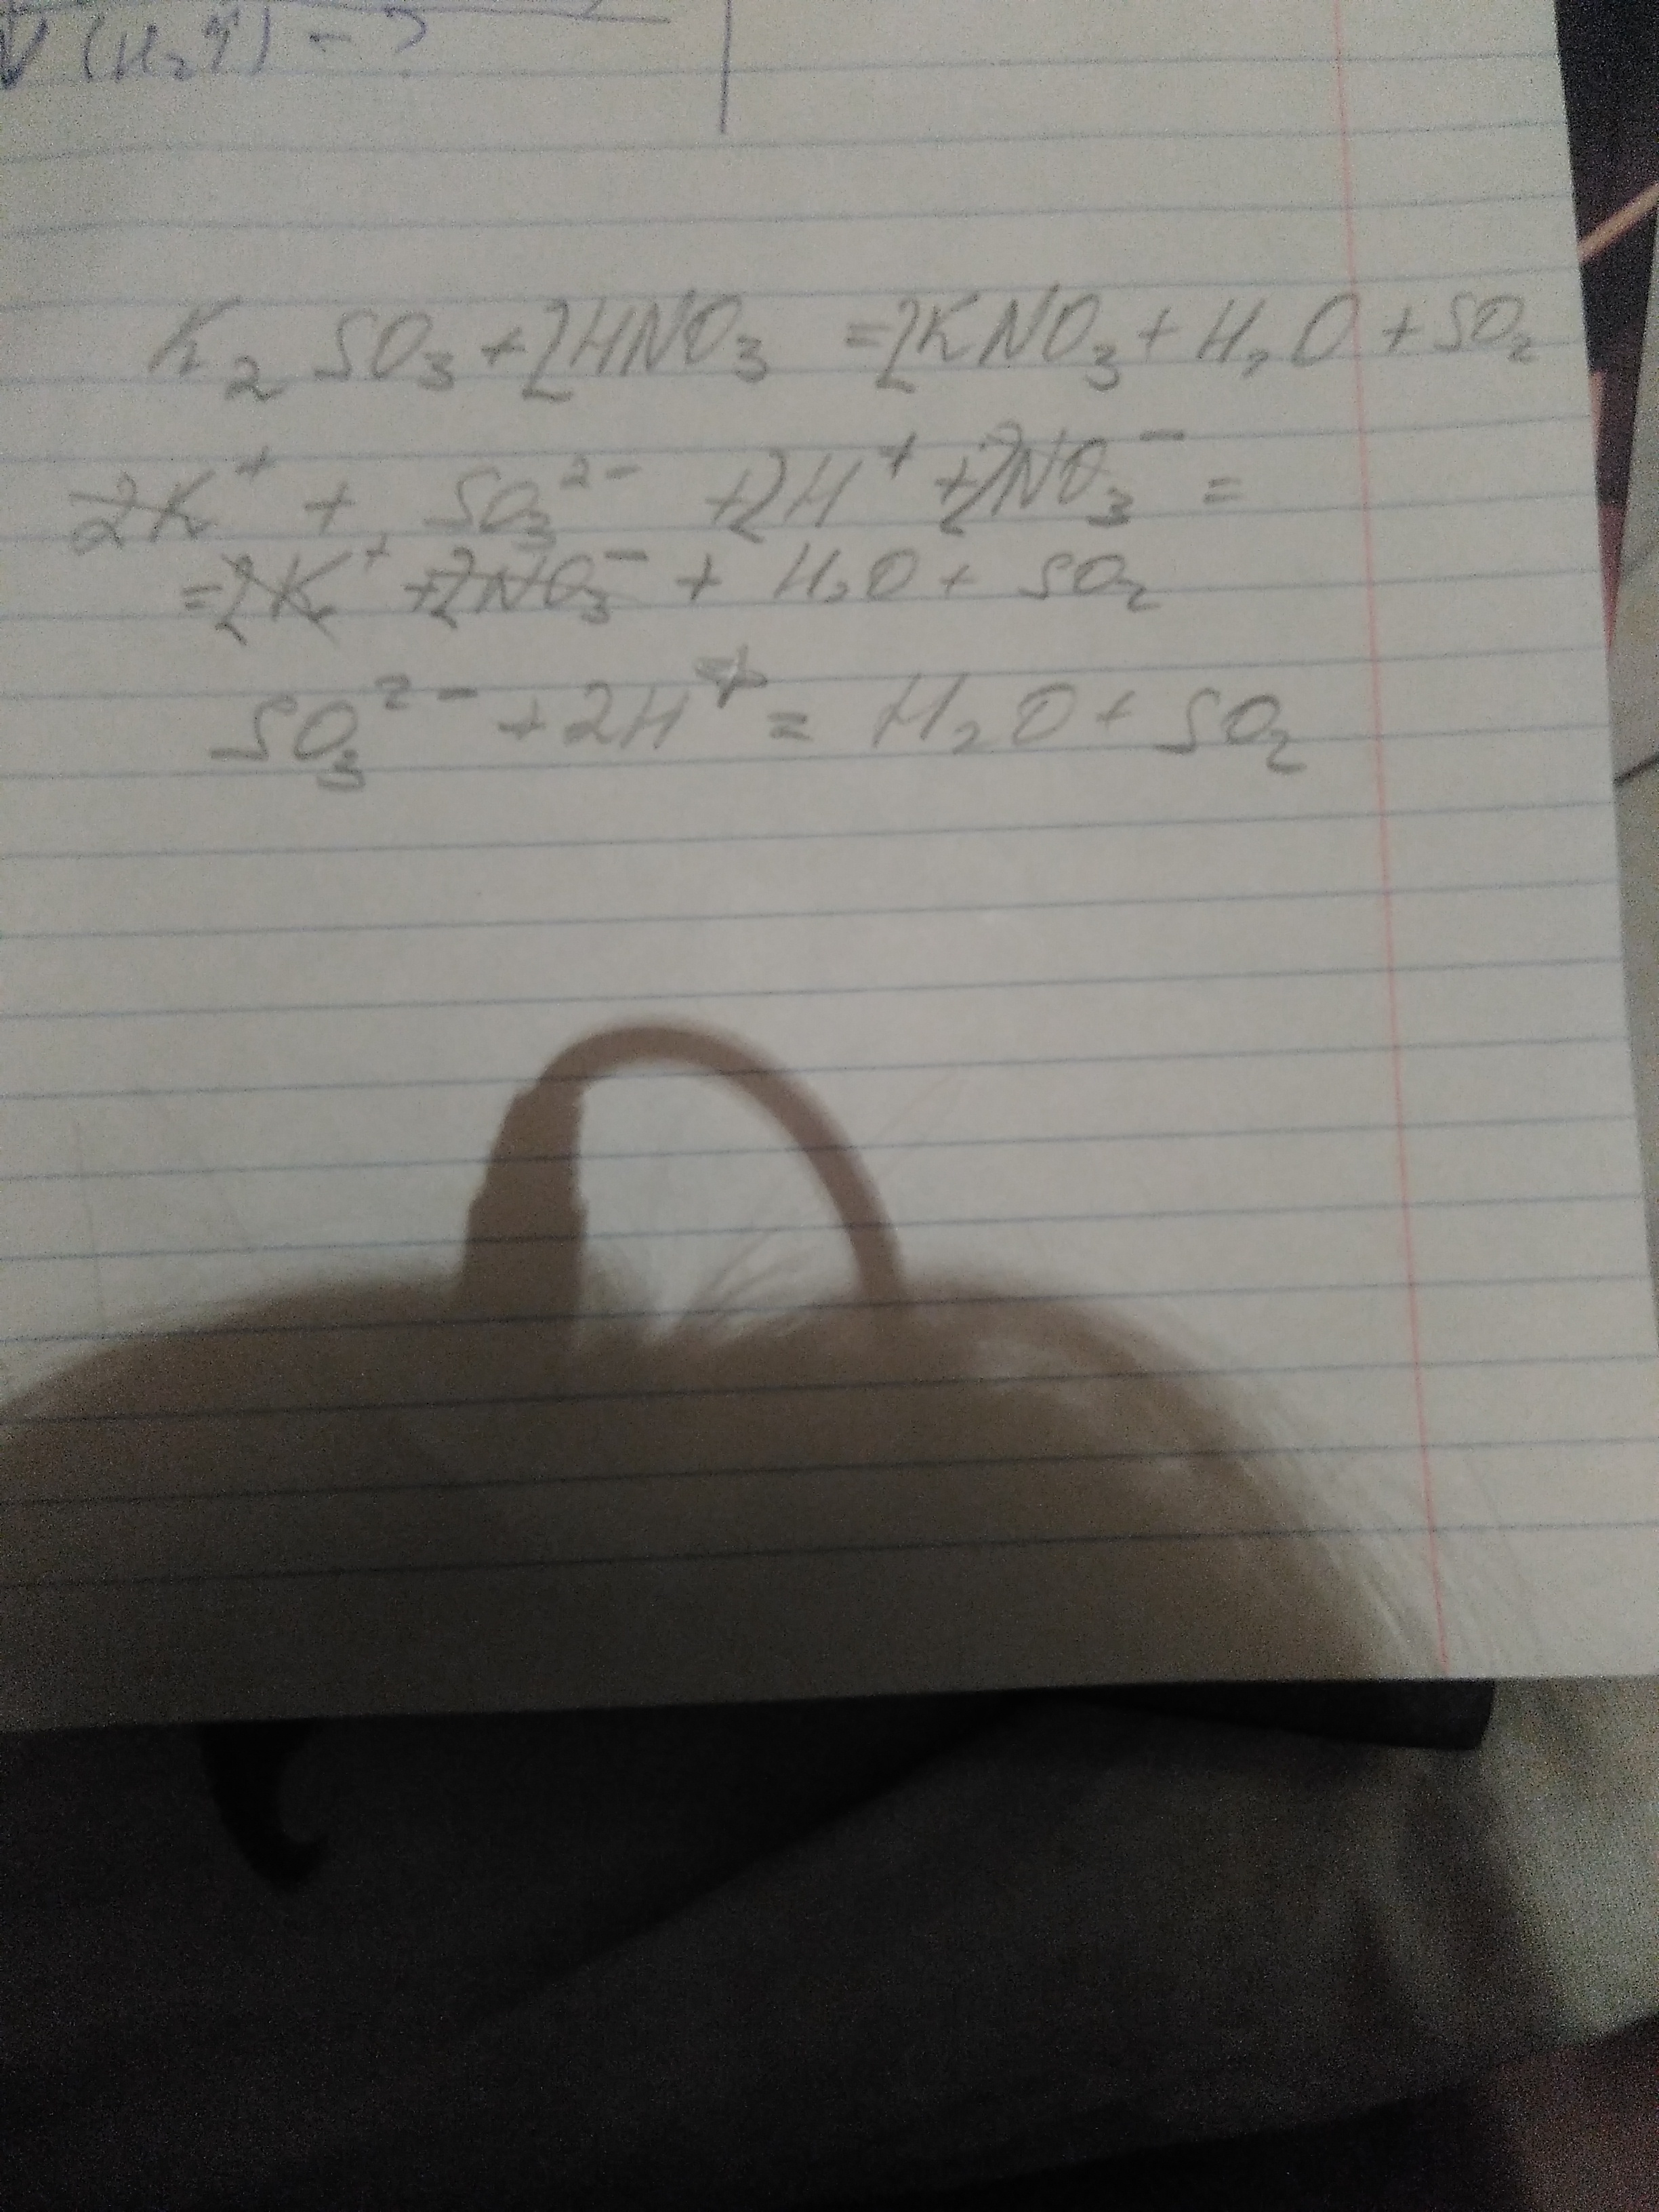 V (H₂↑) - ?
K₂SO₃ + 2HNO₃ = 2KNO₃ + H₂O + SO₂
2K⁺ + SO₃²⁻ + 2H⁺ + 2NO₃⁻ =
= 2K⁺ + 2NO₃⁻ + H₂O + SO₂
SO₃²⁻ + 2H⁺ = H₂O + SO₂